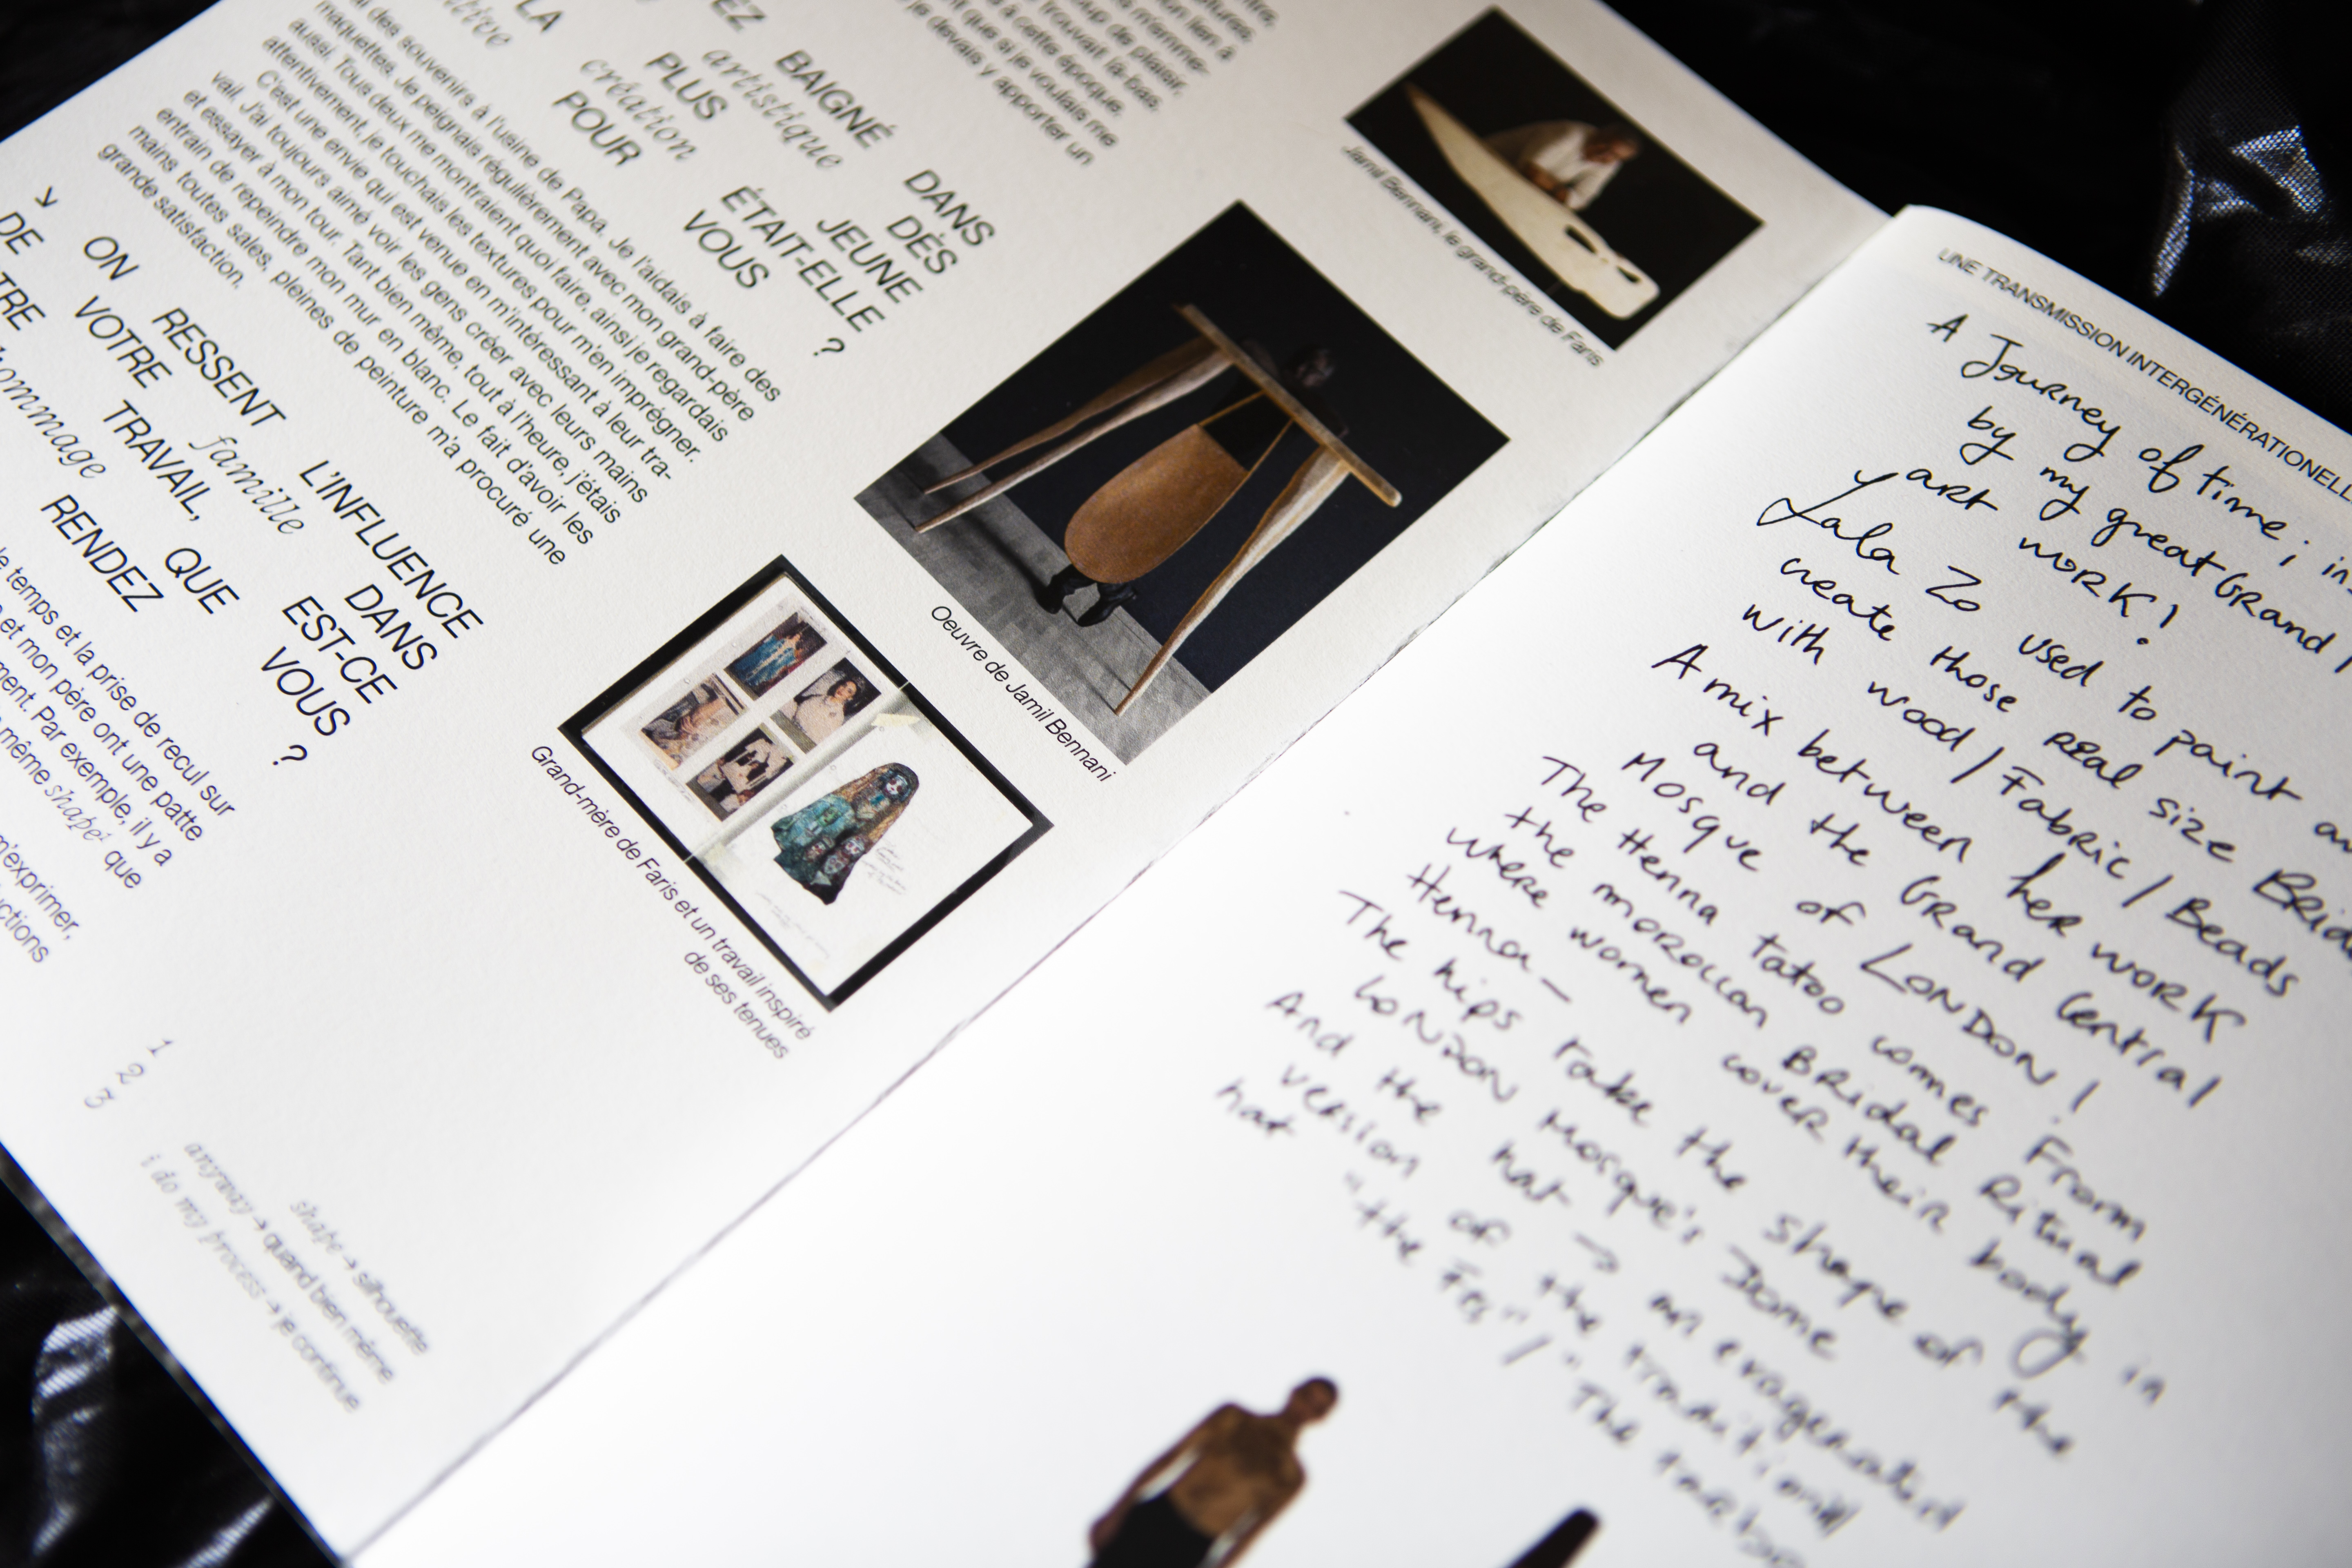 LA
BAIGNÉ DANS
artistique DÈS
PLUS JEUNE
création ÉTAIT-ELLE
POUR VOUS ?
des souvenirs à l'usine de Papa. Je l'aidais à faire des
maquettes. Je peignais régulièrement avec mon grand-père
aussi. Tous deux me montraient quoi faire, ainsi je regardais
attentivement, je touchais les textures pour m'en imprégner.
C'est une envie qui est venue en m'intéressant à leur tra-
vail. J'ai toujours aimé voir les gens créer avec leurs mains
et essayer à mon tour. Tant bien même, tout à l'heure, j'étais
entrain de repeindre mon mur en blanc. Le fait d'avoir les
mains toutes sales, pleines de peinture m'a procuré une
grande satisfaction.
↘ ON RESSENT L'INFLUENCE
DE VOTRE famille DANS
TRAVAIL, QUE EST-CE
hommage RENDEZ VOUS ?
le temps et la prise de recul sur
et mon père ont une patte
Par exemple, il y a
même shape¹ que
m'exprimer,
lien à
plaisir,
trouvait là-bas,
à cette époque.
que si je voulais me
je devais y apporter un
Jamil Bennani, le grand-père de Faris
Oeuvre de Jamil Bennani
Grand-mère de Faris et un travail inspiré
de ses tenues
1 shape → silhouette
2 anyway → quand bien même
3 i do my process → je continue
UNE TRANSMISSION INTERGÉNÉRATIONELL
A Journey of time ; in
by my great Grand
art work !
Lala Zo used to paint
create those real size
with wood / Fabric / Beads
A mix between her work
and the Grand Central
Mosque of LONDON !
The Henna tatoo comes From
the moroccan Bridal Ritual
where women cover their body in
Henna –
The hips take the shape of the
LONDON Mosque's Dome
And the hat → an exagerated
version of the
hat "the Fes" / "The